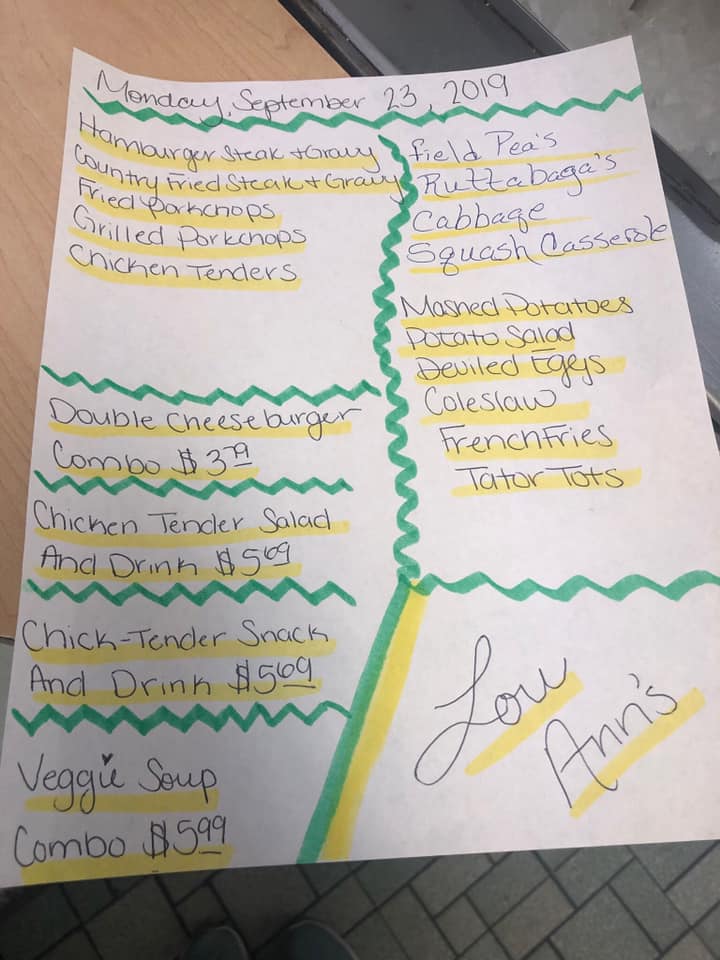 Monday, September 23, 2019
Hamburger Steak + Gravy
Country Fried Steak + Gravy
Fried Porkchops
Grilled Porkchops
Chicken Tenders
Double Cheeseburger
Combo $3.79
Chicken Tender Salad
And Drink $5.69
Chick-Tender Snack
And Drink $5.69
Veggie Soup
Combo $5.99
field Pea's
Ruttabaga's
Cabbage
Squash Casserole
Mashed Potatoes
Potato Salad
Deviled Eggs
Coleslaw
French Fries
Tator Tots
Lou
Ann's